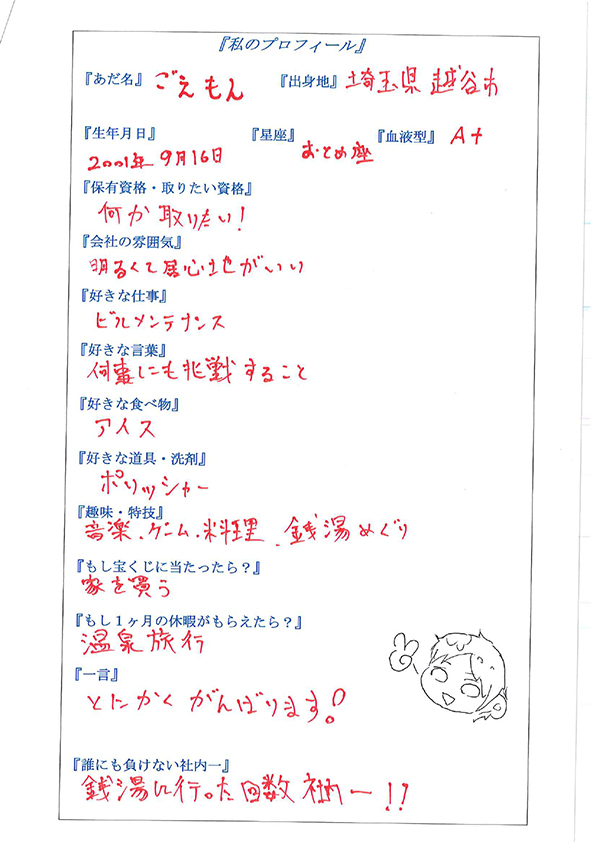 『私のプロフィール』
『あだ名』 ごえもん 『出身地』 埼玉県 越谷市
『生年月日』 『星座』 『血液型』 A+
2001年 9月16日 おとめ座
『保有資格・取りたい資格』
何か取りたい!
『会社の雰囲気』
明るくて居心地がいい
『好きな仕事』
ビルメンテナンス
『好きな言葉』
何事にも挑戦すること
『好きな食べ物』
アイス
『好きな道具・洗剤』
ポリッシャー
『趣味・特技』
音楽、ゲーム、料理、銭湯めぐり
『もし宝くじに当たったら？』
家を買う
『もし１ヶ月の休暇がもらえたら？』
温泉旅行
『一言』
とにかく がんばります!
『誰にも負けない社内一』
銭湯に行った回数 社内一!!